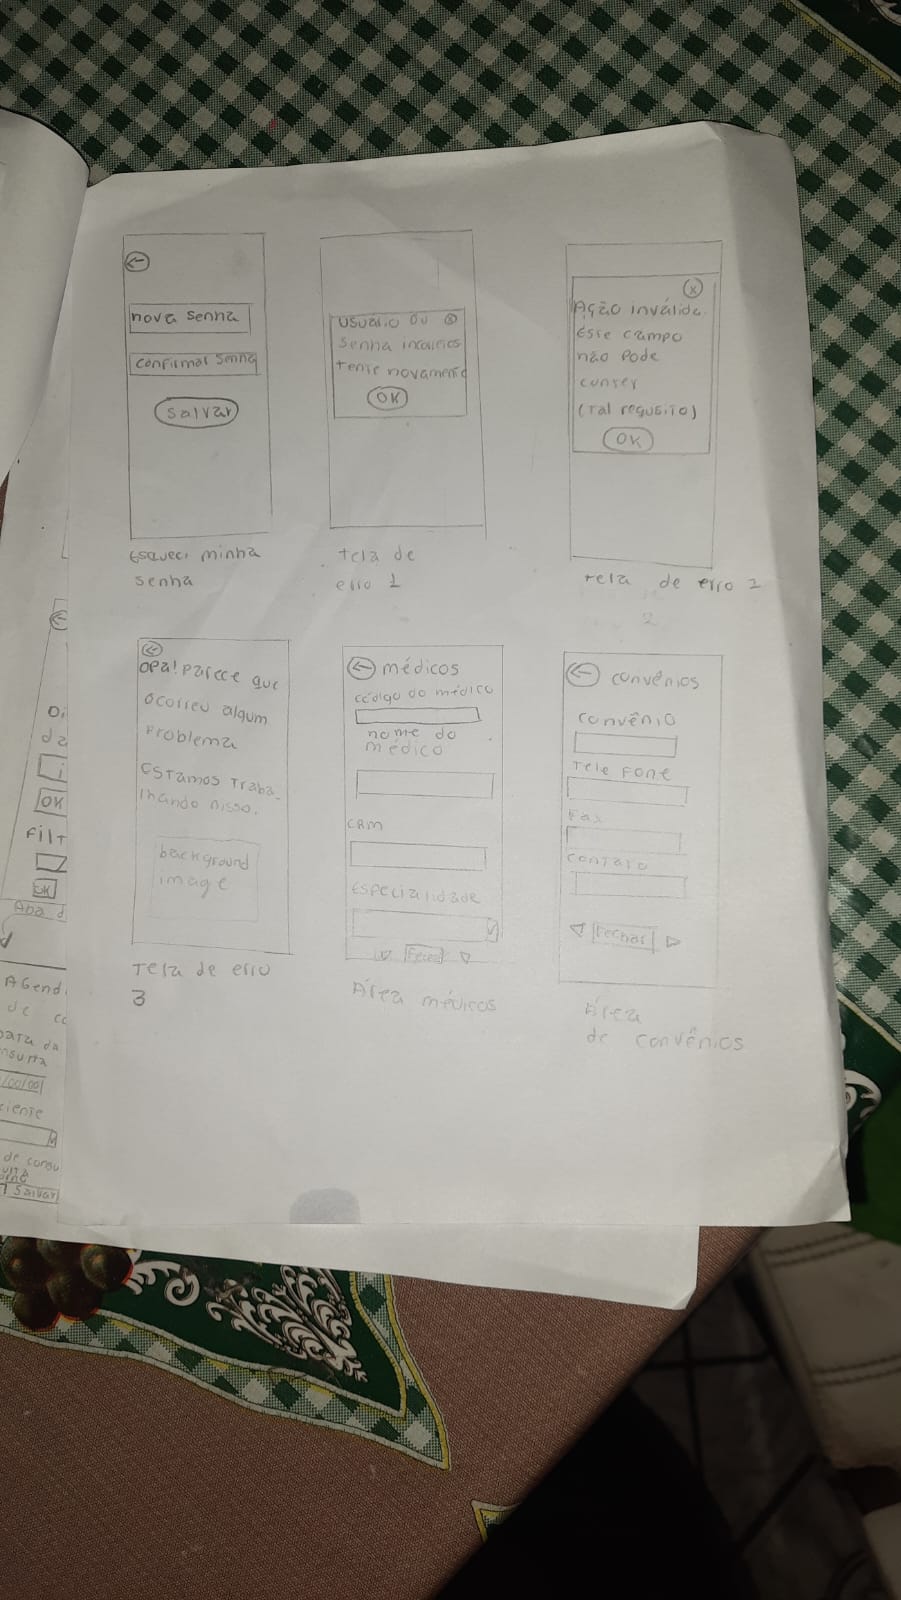 nova senha
confirmar senha
salvar
Esqueci minha
senha
usuário ou
senha incorretos
tente novamente
OK
tela de
erro 1
x
Ação inválida.
Esse campo
não pode
conter
(tal requsito)
OK
tela de erro 2
2
OPA! Parece que
ocorreu algum
problema
Estamos traba-
lhando nisso.
background
image
Tela de erro
3
médicos
código do médico
nome do
médico
CRM
Especialidade
Área médicos
convênios
convênio
Telefone
Fax
contato
Fechar
Área
de convênios
OK
Filt
OK
Aba d
AGend
de co
iente
de consu
Salvar